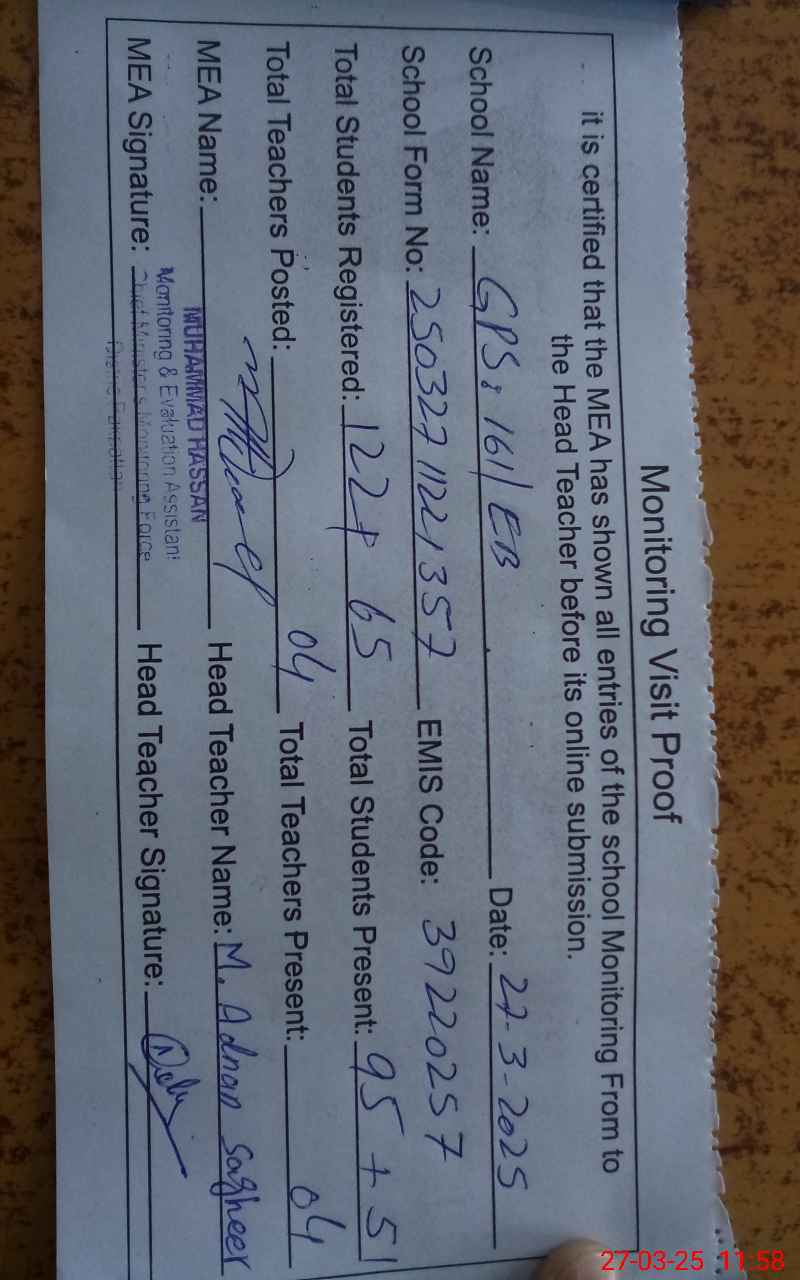 Monitoring Visit Proof
it is certified that the MEA has shown all entries of the school Monitoring From to
the Head Teacher before its online submission.
School Name: GPS: 161/EB Date: 27-3-2025
School Form No: 250327 11221357 EMIS Code: 39220257
Total Students Registered: 122+ 65 Total Students Present: 95 + 51
Total Teachers Posted: 04 Total Teachers Present: 04
MEA Name: MUHAMMAD HASSAN Head Teacher Name: M. Adnan Sagheer
Monitoring & Evaluation Assistant
MEA Signature: Chief Minister's Monitoring Force Head Teacher Signature:
27-03-25 11:58